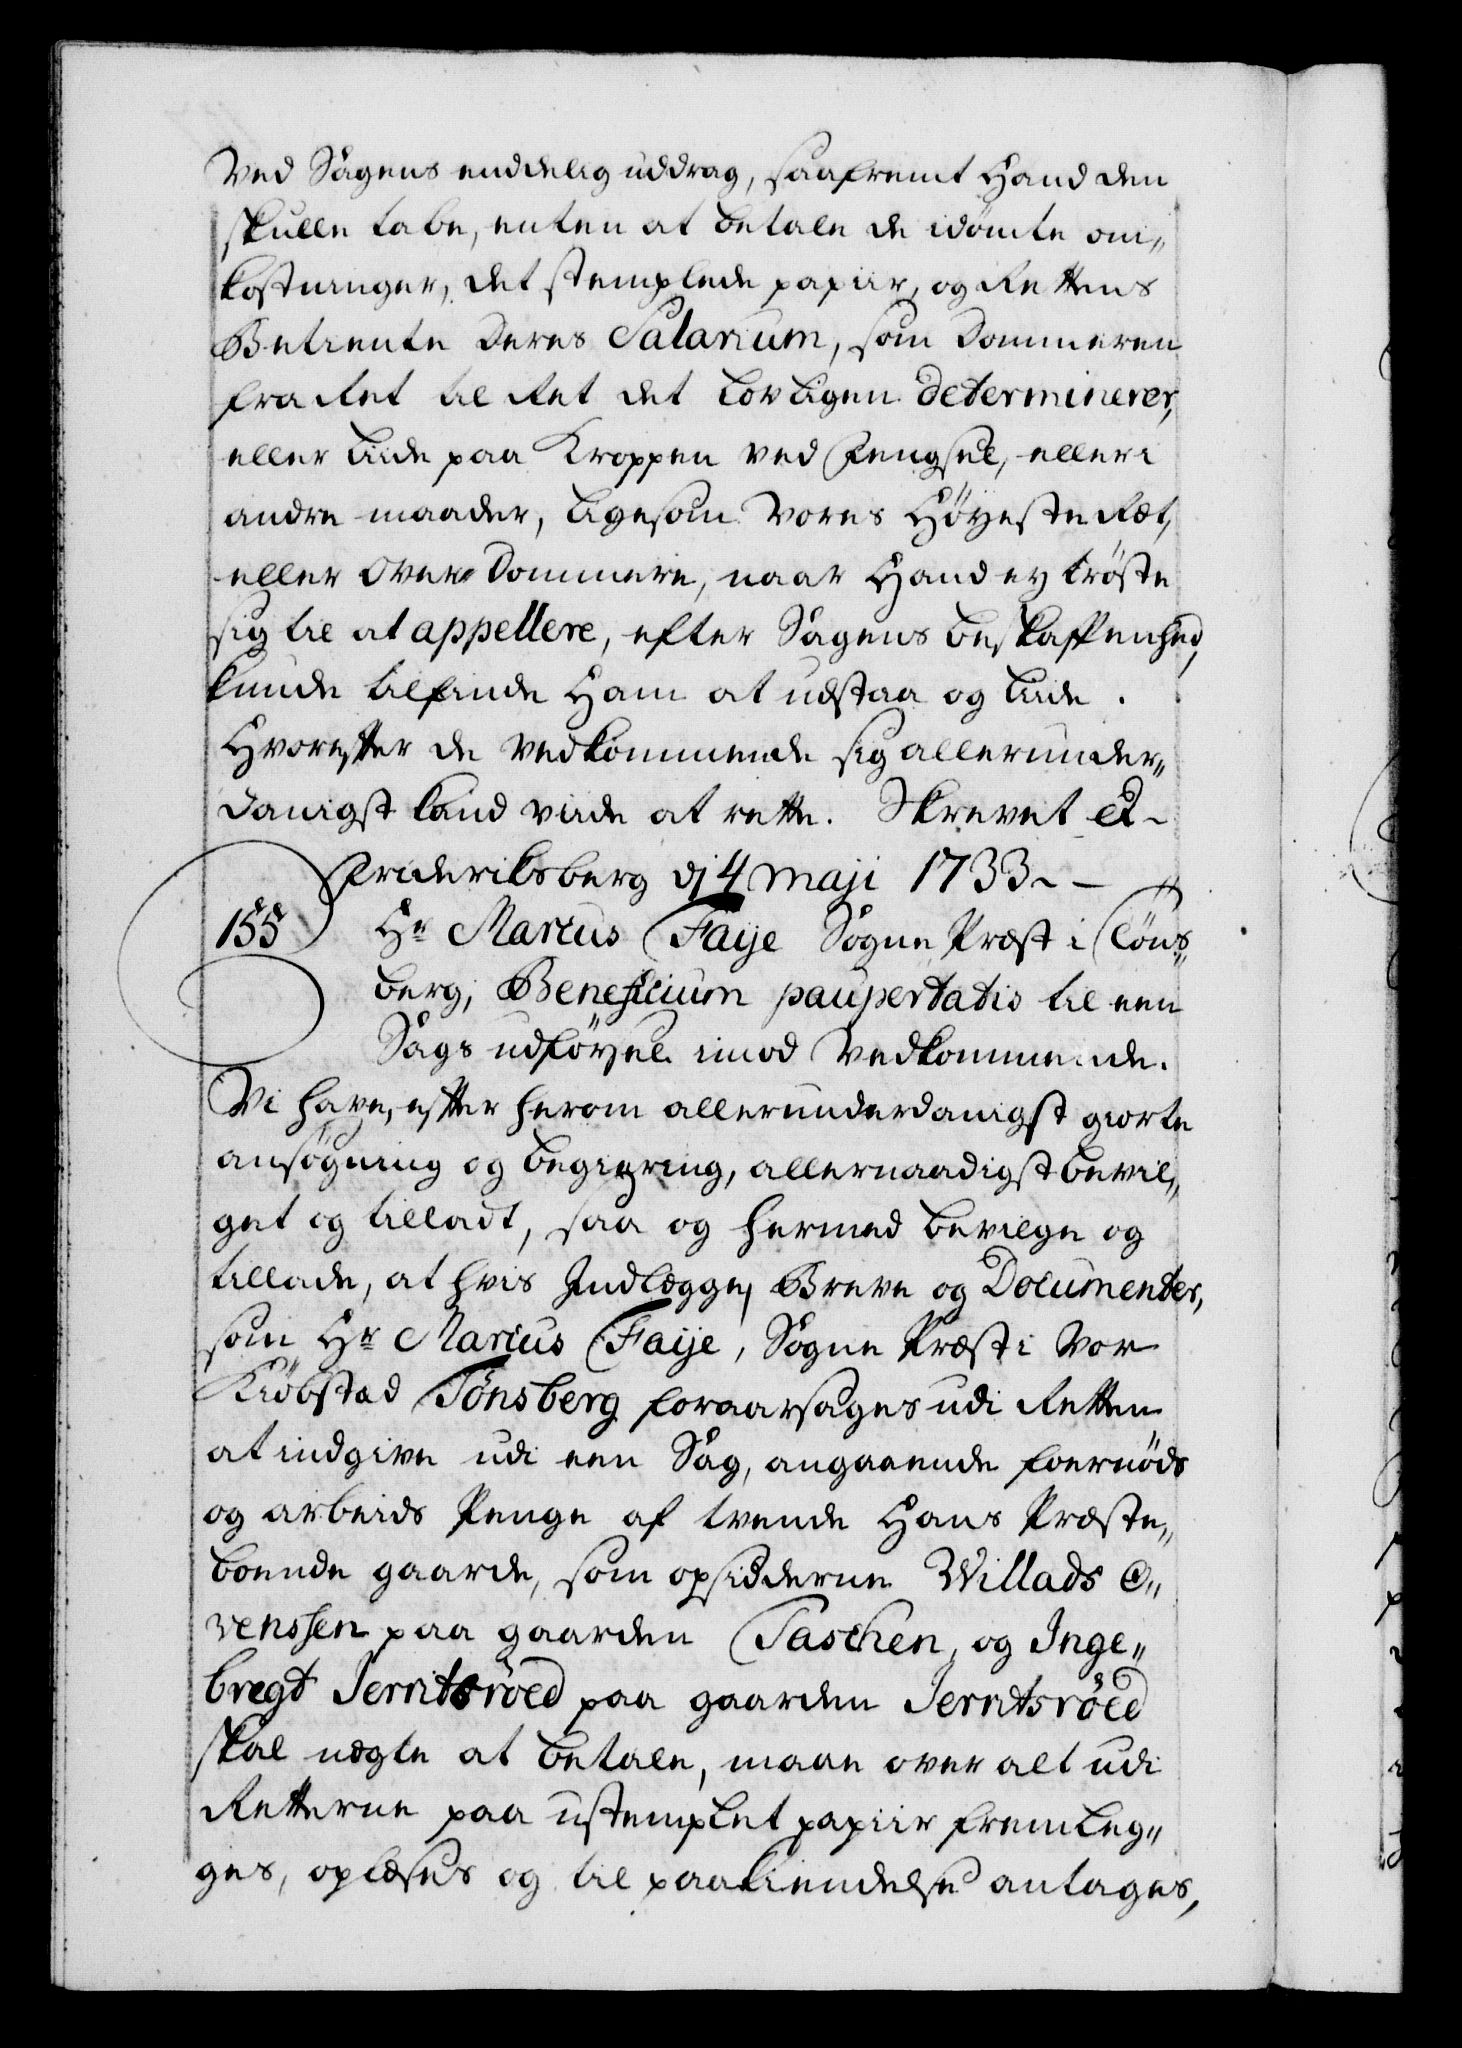 Ved Sagens enddelig uddrag, saafremt Hand den
skulle tabe, enten at betale de idömte om„
kostninger, det stemplede papiir, og Rettens
Betiente deres Salarium, som Dommeren
fra Ret til Ret det lovligen determinerer,
eller liide paa Kroppen ved Fengsel, eller i
andre maader, ligesom Vores Höÿeste Ræt,
eller Over-Dommere, naar Hand ey tröste
sig til at appellere, efter Sagens beskaffenhed,
kunde tilfinde Ham at udstaa og liide.
Hvorefter de Vedkommende sig allerunder„
danigst kand viide at rette. Skrevet &
Frideriksberg dj 4 maji 1733
155 Hr Marcus Faije Sogne Præst i Töns„
berg, Beneficium paupertatis til een
Sags udförsel imod Vedkommende.
Vi have, efter herom allerunderdanigst giorte
ansögning og begiering, allernaadigst bevil„
get og tilladt, saa og hermed bevilge og
tillade, at hvis Indlægge, Breve og Documenter,
som Hr Marcus Faije, Sogne Præst i Vor
Kiöbstæd Tönsberg foraarsages udi Retten
at indgive udi een Sag, angaaende foernöds
og arbeids Penge af tvende Hans Præste„
boende gaarde, som opsidderne Willads E„
venssen paa gaarden Taschen, og Inge„
bregt Jerntsröed paa gaarden Jerntsröed
skal nægte at betale, maae over alt udi
Retterne paa ustemplet papiir fremleg„
ges, oplæses og til paakiendelse antages,